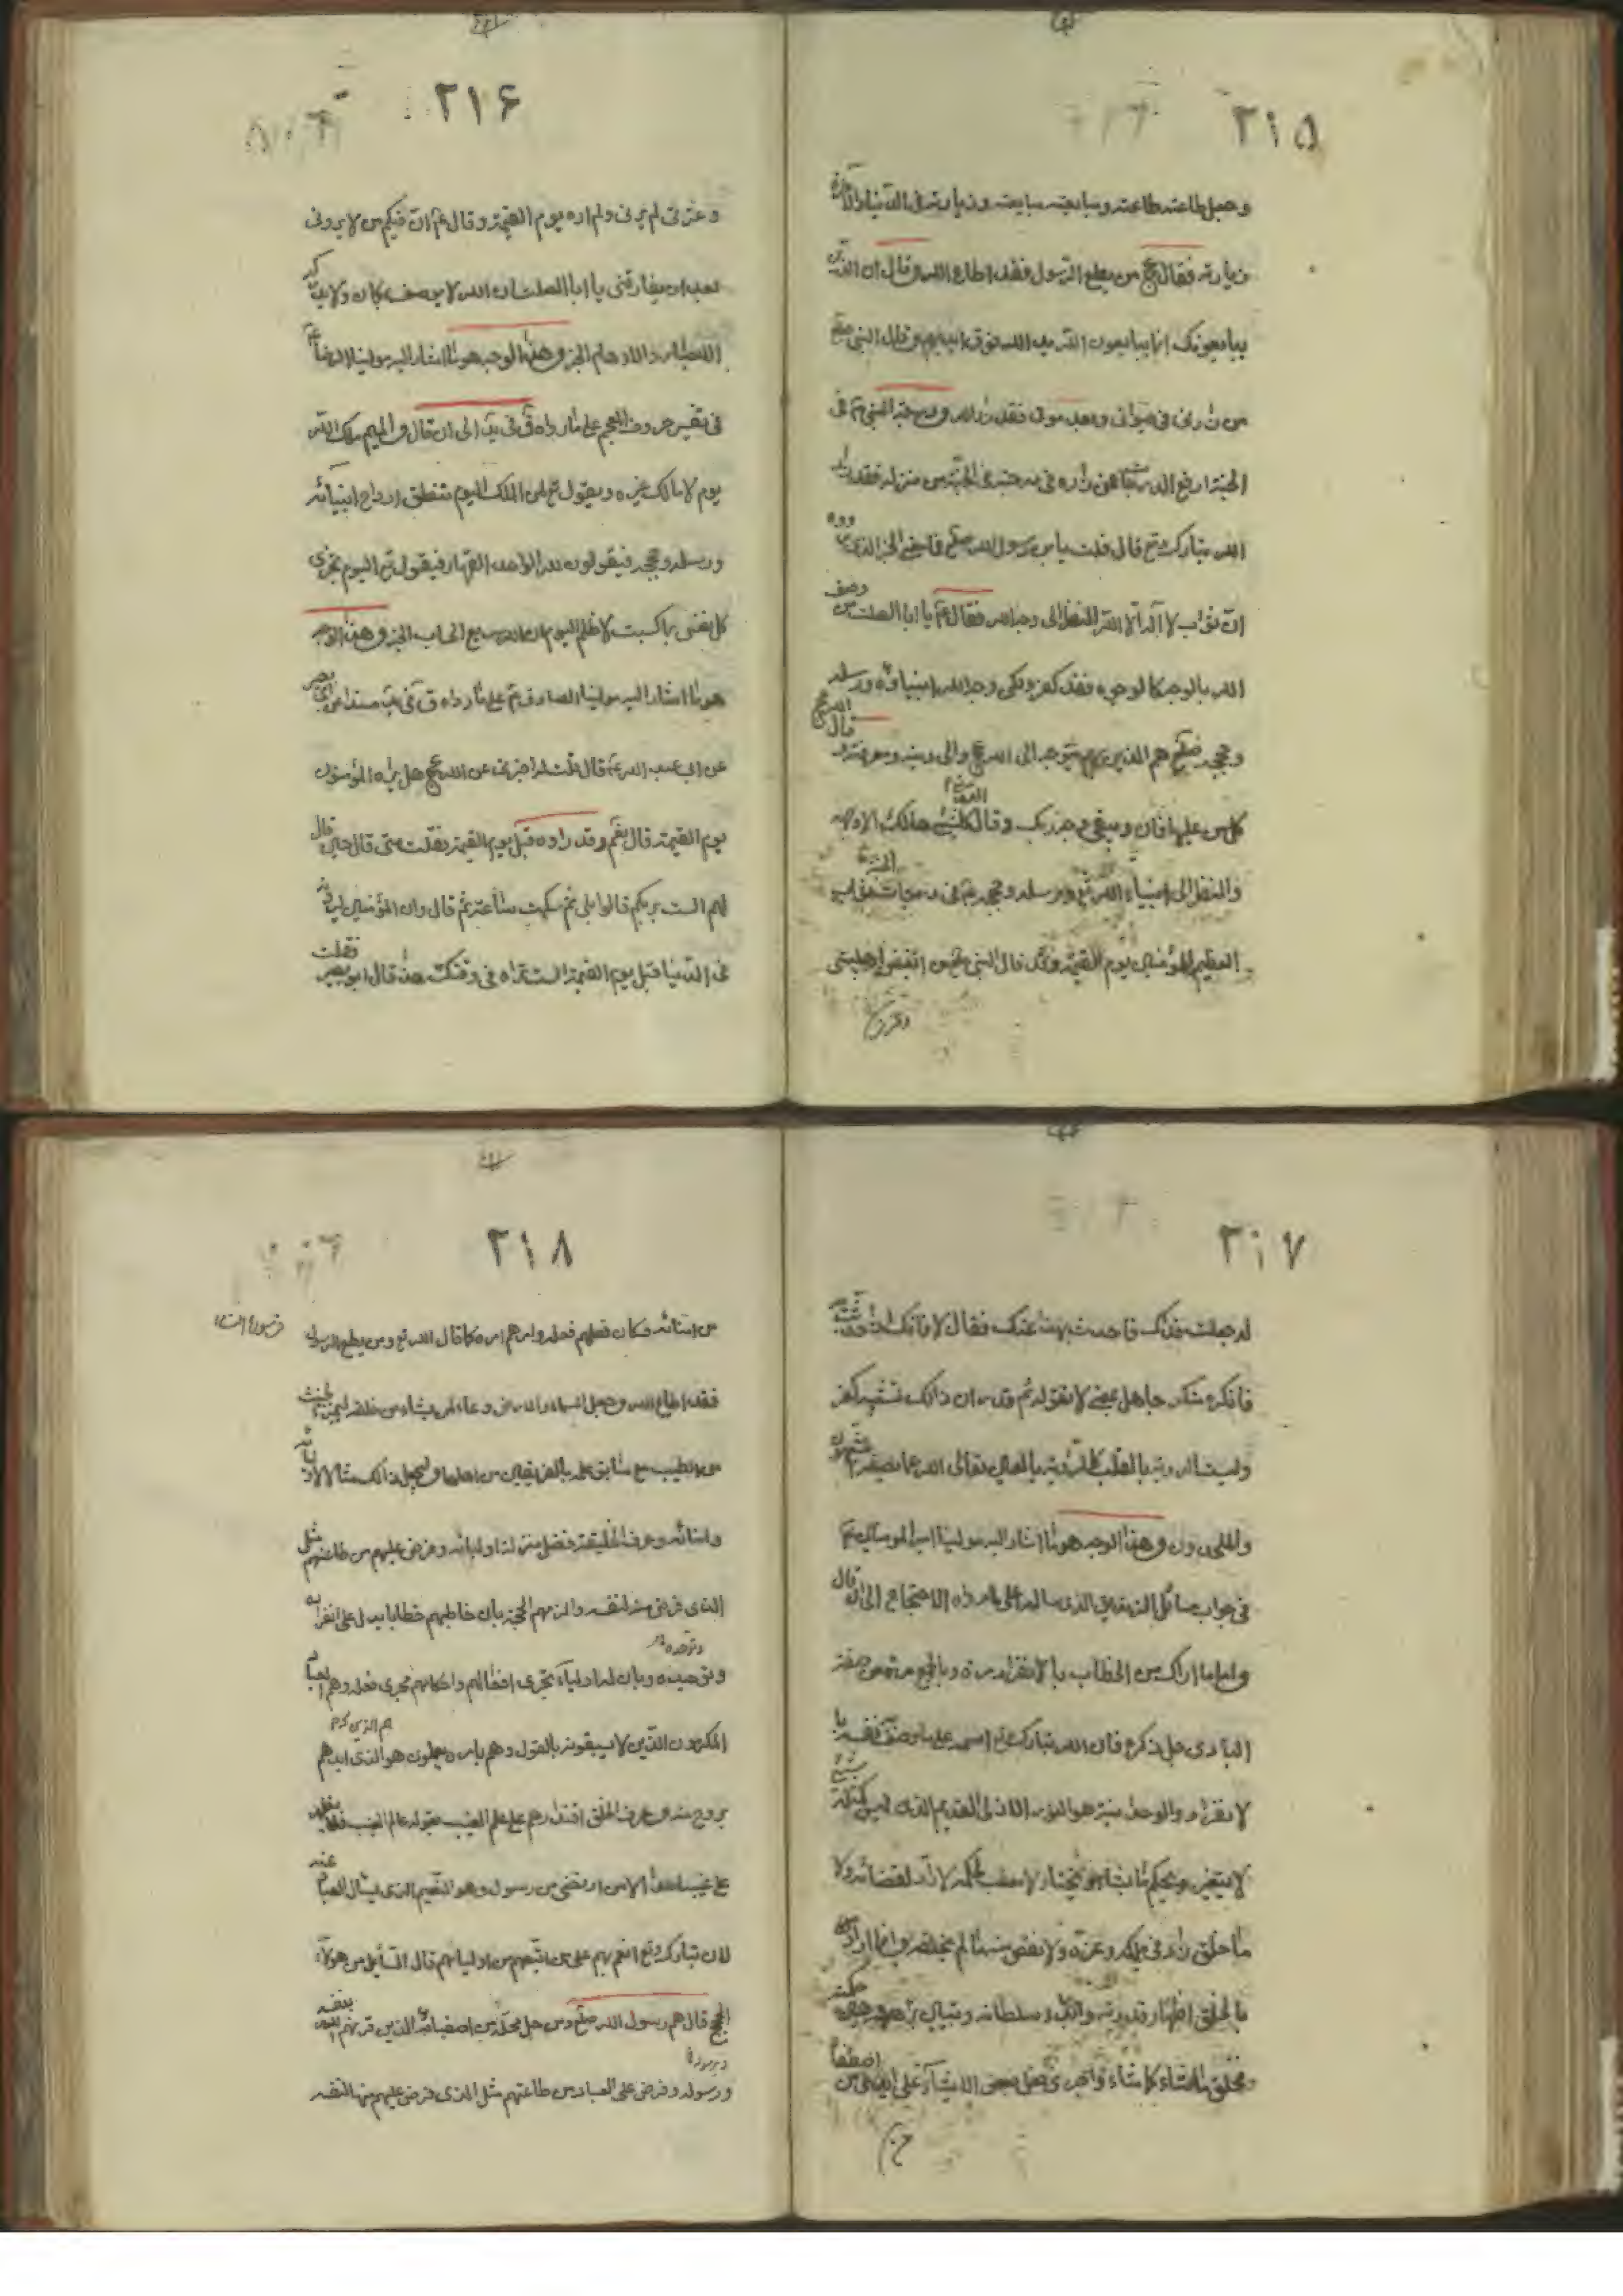 ٣١۵
وجعل طاعته طاعته ومبايعته مبايعته وزيارته فى الدنيا والآخرة
زيارته فقال عج من يطع الرسول فقد اطاع الله وقال ان الذين
يبايعونك انما يبايعون الله يد الله فوق ايديهم وقال النبى صلعم
من زارنى فى حيوتى وبعد موتى فقد زار الله ودرجة النبى ص فى
الجنة ارفع الدرجات فمن زاره فى درجته فى الجنة من منزله فقد زار
الله تبارك وتع قال قلت يابن رسول الله صلعم فما معنى الخبر الذى رووه
ان ثواب لا اله الا الله النظر الى وجه الله فقال ع يا ابا الصلت من وصف
الله بالوجه كالوجوه فقد كفر ولكن وجه الله انبياؤه ورسله
وحججه صلعم هم الذين بهم يتوجه الى الله عج والى دينه ومعرفته وقال الله عج
كل من عليها فان ويبقى وجه ربك وقال كل شئ هالك الا وجهه
والنظر الى انبياء الله تع ورسله وحججه ع فى درجاتهم ثواب
العظيم للمؤمنين يوم القيمة وقد قال النبى صلعم من ابغض اهلبيتى
وعترتى
٣١۶
وعترتى لم يرنى ولم اره يوم القيمة وقال ع ان فيكم من لا يرونى
بعد ان يفارقنى يا ابا الصلت ان الله لا يوصف بمكان ولا يدركه
الابصار والاوهام الخبر وهذا الوجه هو ما اشار اليه مولينا الرضا ع
فى تفسير حروف المعجم على ما رواه ق فى يد الى ان قال والميم ملك الله
يوم لا مالك غيره ويقول تع لمن الملك اليوم ثم تنطق ارواح انبيائه
ورسله وحججه فيقولون لله الواحد القهار فيقول تع اليوم تجزى
كل نفس بما كسبت لا ظلم اليوم ان الله سريع الحساب الخبر وهذا الوجه
هو ما اشار اليه مولينا الصادق ع على ما رواه ق فى يد مسندا عن ابى بصير
عن ابى عبد الله ع قال قلت له اخبرنى عن الله عج هل يراه المؤمنون
يوم القيمة قال نعم وقد راوه قبل يوم القيمة فقلت متى قال حين قال
لهم الست بربكم قالوا بلى ثم سكت ساعة ثم قال وان المؤمنين ليرونه
فى الدنيا قبل يوم القيمة الست تراه فى وقتك هذا قال ابو بصير فقلت
٣١٧
له جعلت فداك فاحدث بهذا عنك فقال لا فانك اذا حدثت به
فانكره منكر جاهل بمعنى لا نقوله ثم قدر ان ذالك تشبيه كفر
وليست الروية بالقلب كالروية بالعين تعالى الله عما يصفه المشبهون
والملحدون وهذا الوجه هو ما اشار اليه مولينا امير المومنين ع
فى جواب مسائل الزنديق الذى ساله على ما رواه الاحتجاج الى ان قال
واما ما اراك من الخطاب بالانفراد مرة وبالجمع مرة من صفة
البارى جل ذكره فان الله تبارك وتع اسمه على ما وصف به نفسه با
لانفراد والوحدانية هو النور الازلى القديم الذى ليس كمثله شئ
لا يتغير ويحكم ما يشاء ويختار لا معقب لحكمه لا راد لقضائه ولا
ما خلق زاد فى ملكه وعزه ولا نقص منه ما لم يخلقه وانما اراد
بالخلق اظهار قدرته وابداء سلطانه وتبيان براهين حكمته
فخلق ما شاء كما شاء واجرى فعل بعض الاشياء على ايدى من اصطفا
من
٣١٨
من امنائه فكان فعلهم فعله وامرهم امره كما قال الله تع ومن يطع الرسول
فقد اطاع الله وجعل السماء والارض وعاء لمن يشاء من خلقه ليميز الخبيث
من الطيب مع سابق علمه بالفريقين من اهلها وليجعل ذالك مثالا لاوليائه
وامنائه وعرف الخليقة فضل منزلة اوليائه وفرض عليهم من طاعتهم مثل
الذى فرضه منه لنفسه والزمهم الحجة بان خاطبهم خطابا يدل على انفراده
وتوحده
وتوحيده وبان له اولياء تجرى افعالهم واحكامهم مجرى فعله وهم العباد
هم الذين كرم
المكرمون الذين لا يسبقونه بالقول وهم بامره يعملون هو الذى ايدهم
بروح منه وعرف الخلق اقتدارهم على علم الغيب بقوله عالم الغيب فلا يظهر
على غيبه احدا الا من ارتضى من رسول وهو النعيم الذى يسال العباد عنه
لان تبارك وتع انعم بهم على من اتبعهم من اوليائهم قال السائل من هولاء
الحجج قال هم رسول الله صلعم ومن حل محله من اصفياء الله الذين قرنهم الله بنفسه
ورسوله وفرض على العباد من طاعتهم مثل الذى فرض عليهم منها لنفسه